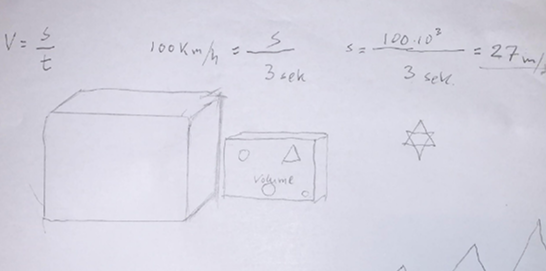 V = s/t
100 Km/h = s/3 sek
s = 100·10³/3 sek. = 27 m/s
Volume